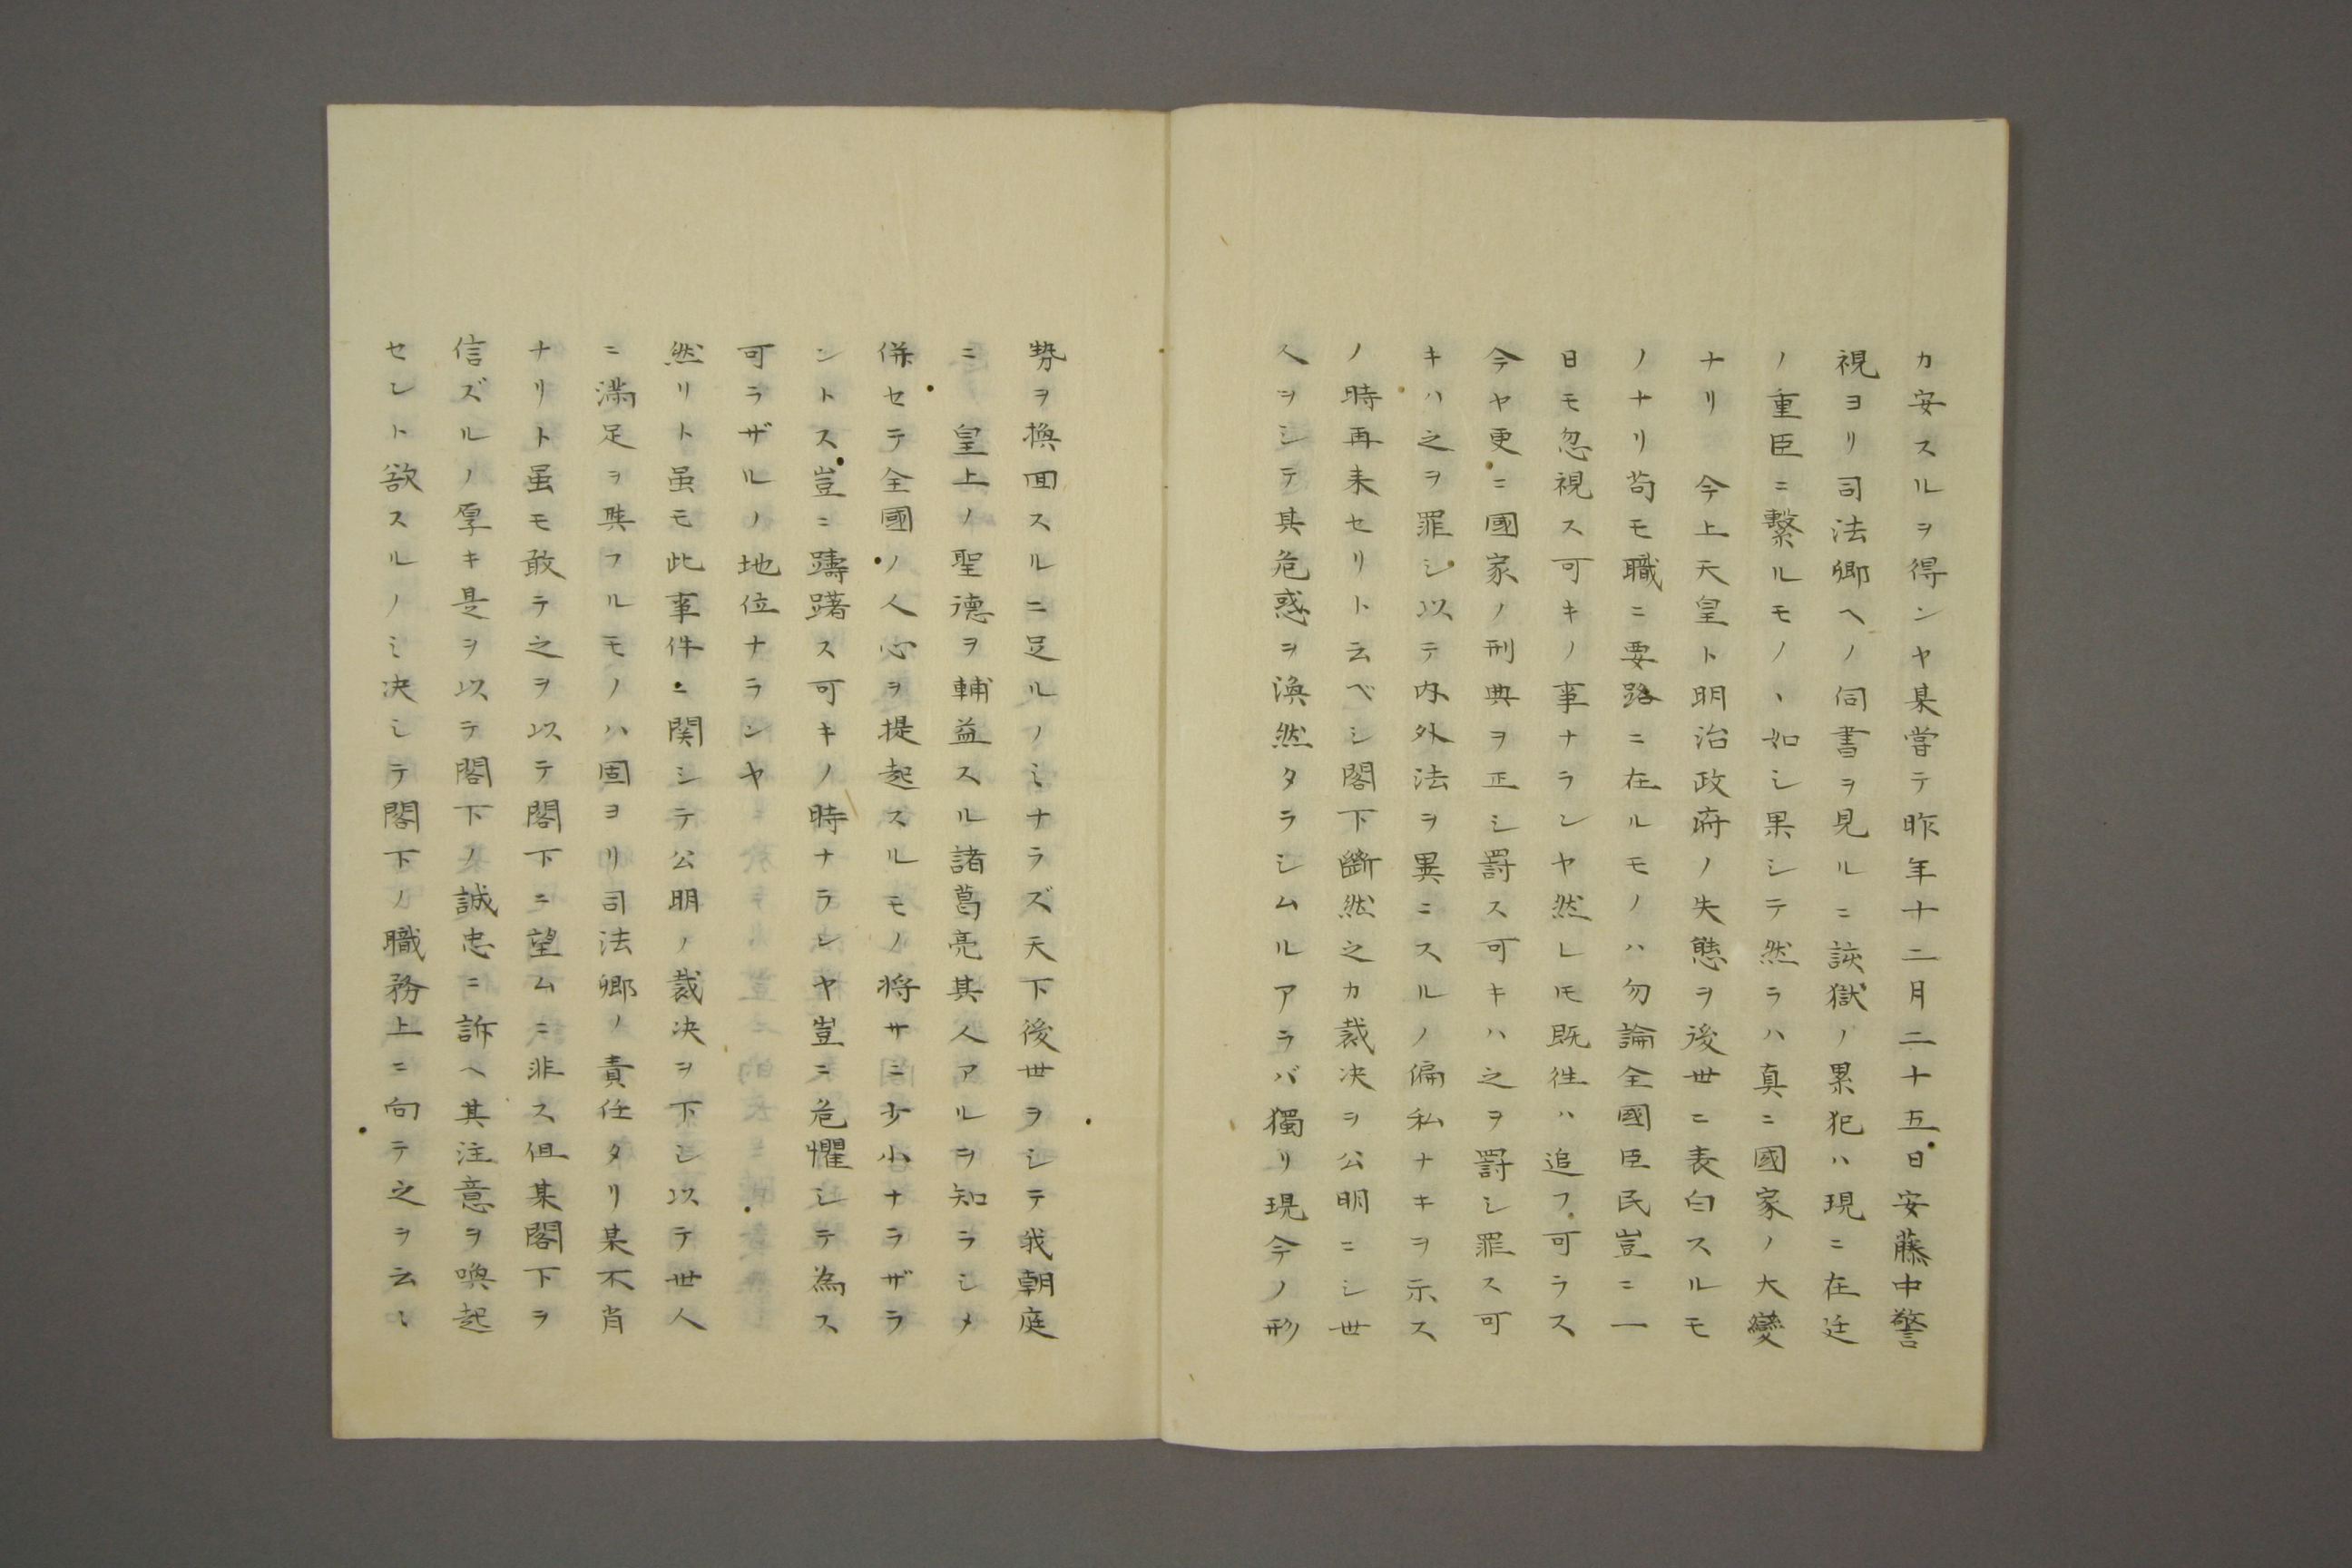 カ安スルヲ得ンヤ某嘗テ昨年十二月二十五日安藤中警
視ヨリ司法卿ヘノ伺書ヲ見ルニ該獄ノ累犯ハ現ニ在廷
ノ重臣ニ繋ルモノヽ如シ果シテ然ラハ真ニ國家ノ大變
ナリ　今上天皇ト明治政府ノ失態ヲ後世ニ表白スルモ
ノナリ苟モ職ニ要路ニ在ルモノハ勿論全國臣民豈ニ一
日モ忽視ス可キノ事ナランヤ然レ𪜈既徃ハ追フ可ラス
今ヤ更ニ國家ノ刑典ヲ正シ罸ス可キハ之ヲ罸シ罪ス可
キハ之ヲ罪シ以テ内外法ヲ異ニスルノ偏私ナキヲ示ス
ノ時再来セリト云ベシ閣下斷然之カ裁决ヲ公明ニシ世
人ヲシテ其危惑ヲ渙然タラシムルアラバ獨リ現今ノ形
勢ヲ換回スルニ足ルノミナラズ天下後世ヲシテ我朝庭
ニ　皇上ノ聖德ヲ輔益スル諸葛亮其人アルヲ知ラシメ
併セテ全國ノ人心ヲ提起スルモノ将サニ少小ナラザラ
ントス豈ニ躊躇ス可キノ時ナランヤ豈ニ危懼シテ為ス
可ラザルノ地位ナランヤ
然リト虽モ此事件ニ関シテ公明ノ裁决ヲ下シ以テ世人
ニ満足ヲ與フルモノハ固ヨリ司法卿ノ責任タリ某不肖
ナリト虽モ敢テ之ヲ以テ閣下ニ望ムニ非ス但某閣下ヲ
信ズルノ厚キ是ヲ以テ閣下ノ誠忠ニ訴ヘ其注意ヲ喚起
セント欲スルノミ决シテ閣下ノ職務上ニ向テ之ヲ云〻